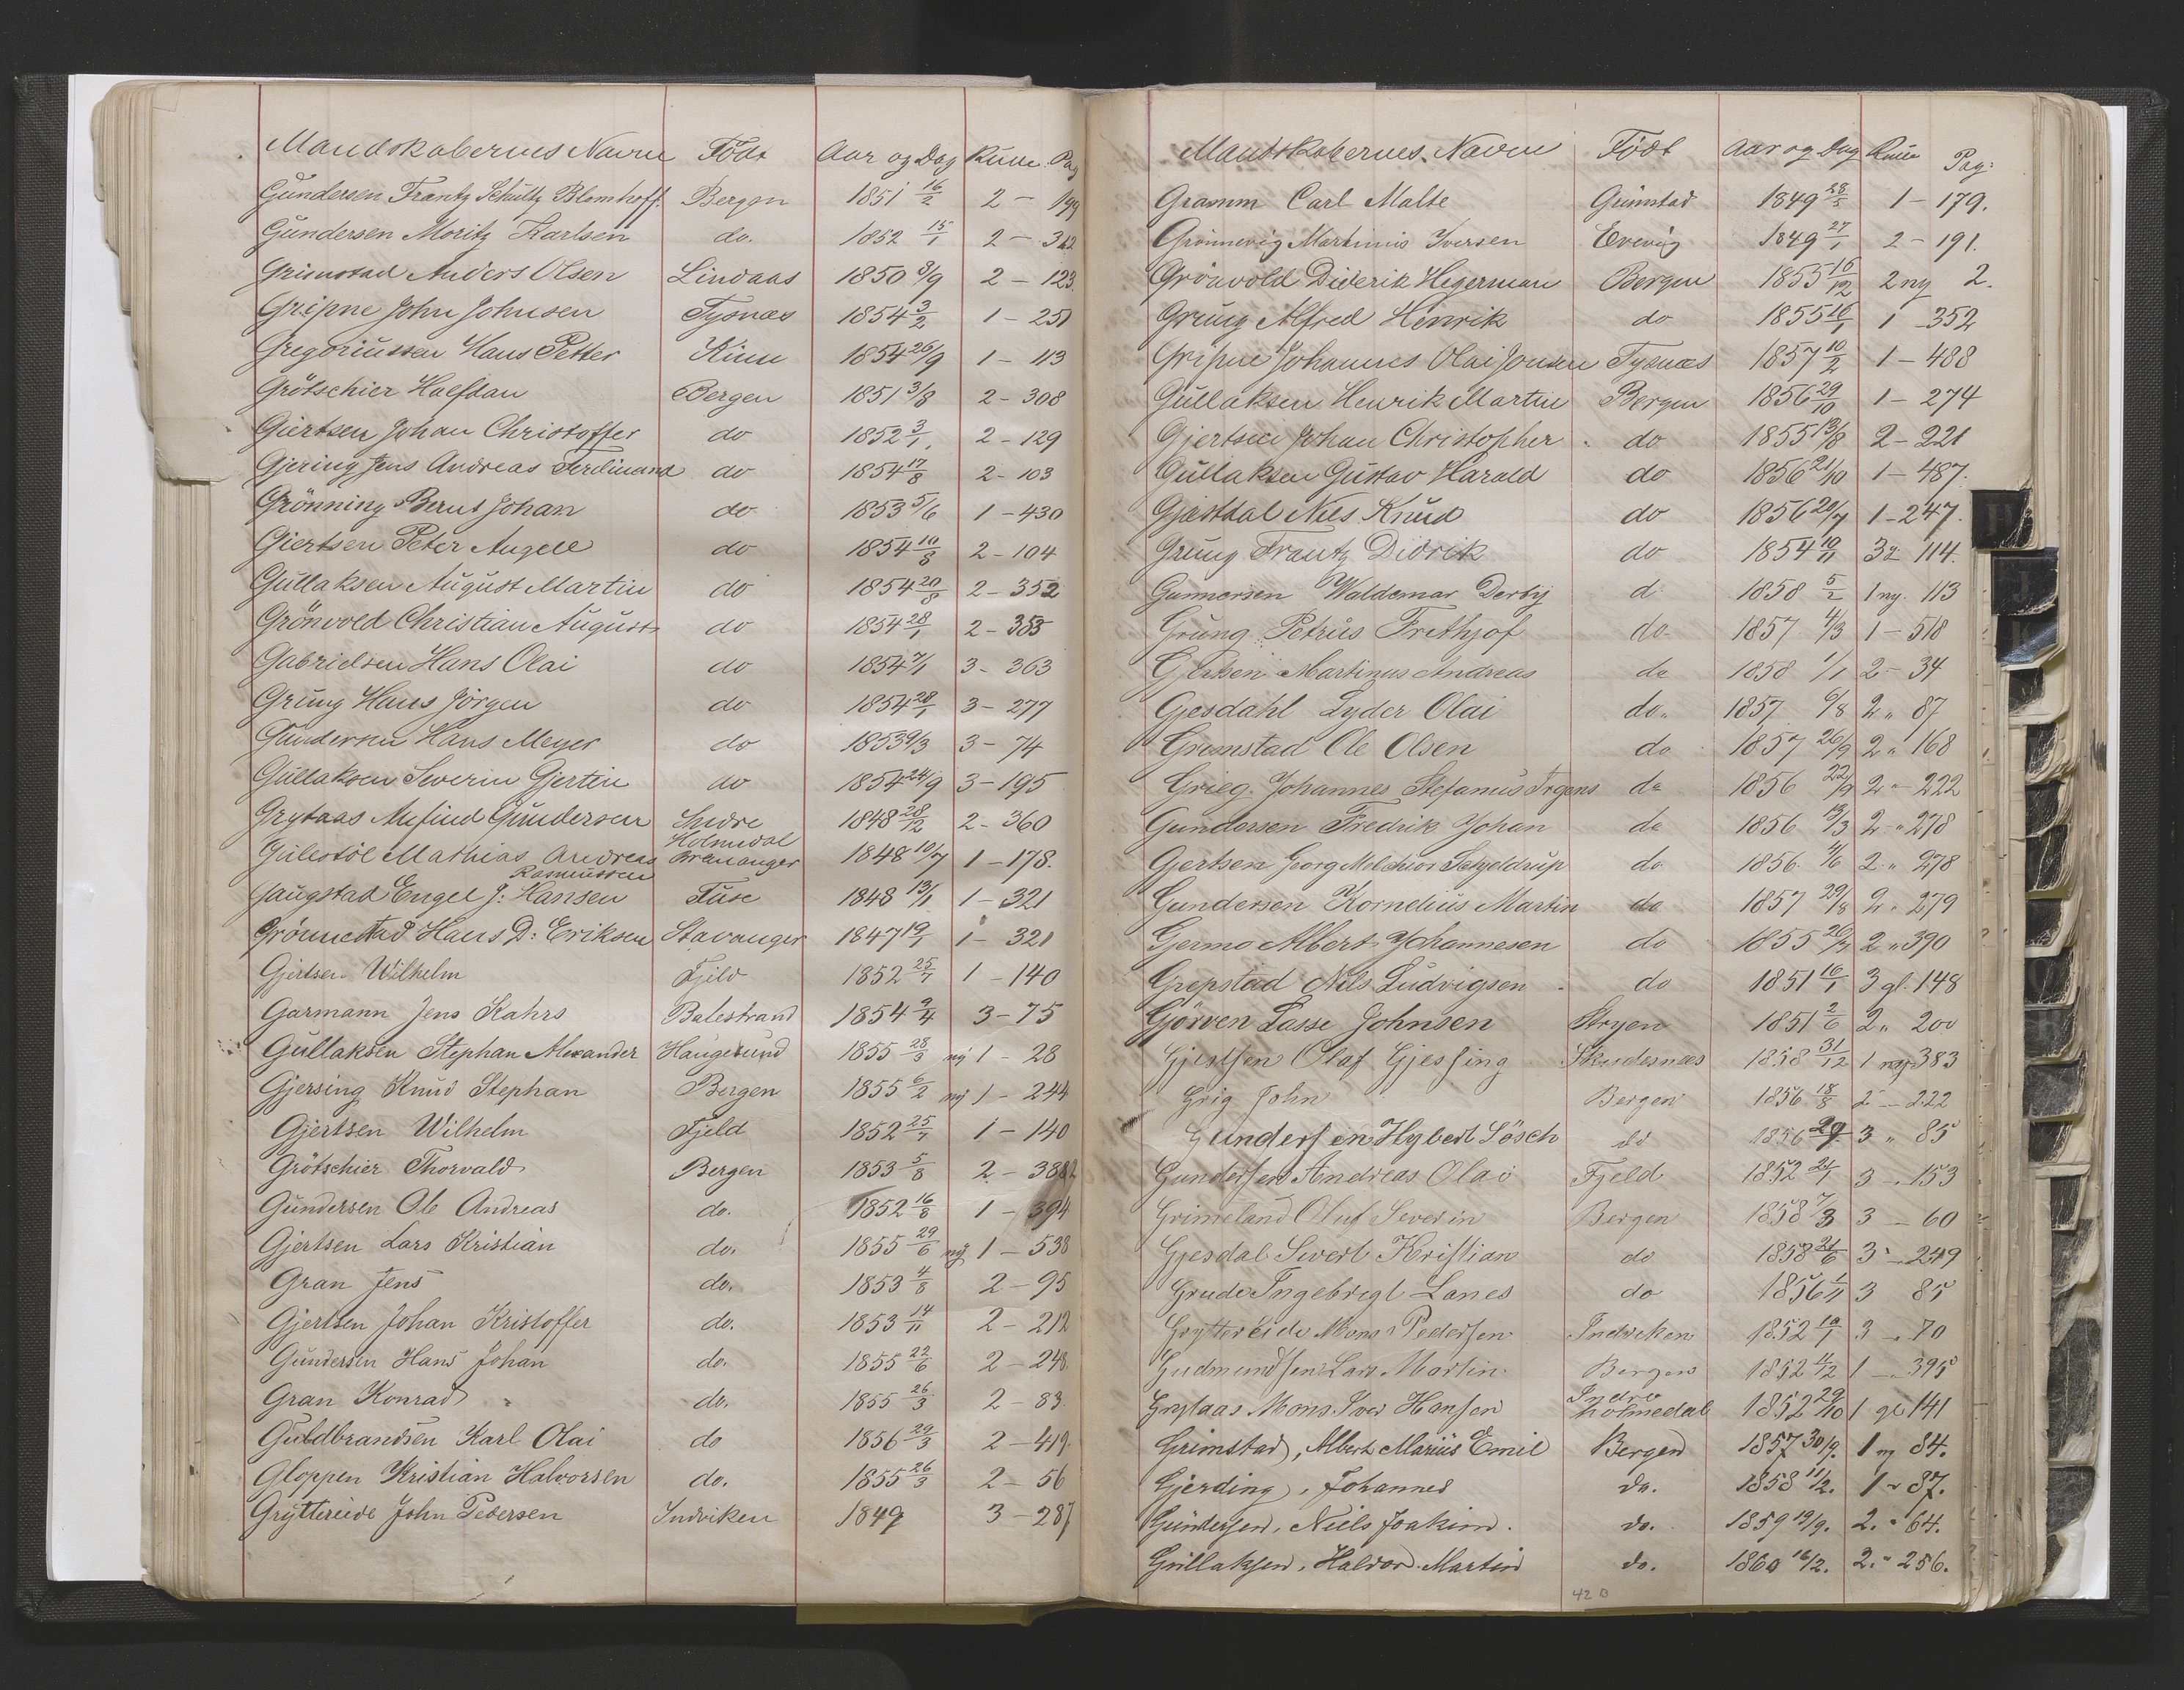 Mandskabernes Navne Födt Aar og Dag Rulle Pag
Gundersen Frantz Schultz Blomhoff. Bergen 1851 16/2 2 - 199
Gundersen Moritz Karlsen do. 1852 15/1 2 - 362
Grimstad Anders Olsen Lindaas 1850 8/9 2 - 123.
Gripne John Johnsen Tysnæs 1854 3/2 1 - 251
Gregoriussen Hans Petter Kinn 1854 26/9 1 - 113
Grötschier Halfdan Bergen 1851 3/8 2 - 308
Giertsen Johan Christoffer do 1852 3/1. 2 - 129
Gjering Jens Andreas Ferdinand do 1854 17/8 2 - 103
Grönning Bernt Johan do 1853 5/6 1 - 430
Giertsen Peter Angell do 1854 10/8 2 - 104
Gullaksen August Martin do 1854 20/8 2 - 352
Grönvold Christian August do 1854 28/1 2 - 353
Gabrielsen Hans Olai do 1854 7/1 3 - 363
Grung Hans Jörgen do 1854 28/1 3 - 277
Gundersen Hans Meyer do 1853 9/3 3 - 74
Gullaksen Severin Gjertin do 1854 24/9 3 - 195
Grytaas Mefind Gundersen Indre Holmedal 1848 28/12 2 - 360
Gulestöl Mathias Andreas Rasmussen Ørenanger 1848 10/7 1 - 178.
Gaugstad Engel J: Hansen Fuse 1848 13/1 1 - 321
Grönnestad Hans D: Eriksen Stavanger 1847 19/1 1 - 321
Gjertsen Wilhelm Fjeld 1852 25/7 1 - 140
Garmann Jens Kahrs Balestrand 1854 9/4 3 - 75
Gullaksen Stephan Alexander Haugesund 1855 28/3 ny 1 - 28
Gjersing Knud Stephan Bergen 1855 6/2 ny 1 - 244
Gjertsen Wilhelm Fjeld 1852 25/7 1 - 140
Grötschier Thorvald Bergen 1853 5/8 2 - 388
Gundersen Ole Andreas do. 1852 16/8 1 - 394
Gjertsen Lars Kristian do. 1855 29/6 ny 1 - 538
Gran Jens do. 1853 4/8 2 - 95
Gjertsen Johan Kristoffer do. 1853 14/11 2 - 212
Gundersen Hans Johan do. 1855 22/6 2 - 248
Gran Konrad do. 1855 26/3 2 - 83
Guldbrandsen Karl Olai do 1856 29/3 2 - 419
Gloppen Kristian Halvorsen do. 1855 26/3 2 - 56
Gryttereide John Pedersen Indviken 1849 3 - 287
Mandskabernes Navne Födt Aar og Dag Rulle Pag:
Gramm Carl Malte Grimstad 1849 28/5 1 - 179.
Grönnevig Martinius Iversen Evevig 1849 27/1 2 - 191.
Grönvold Diderik Hegerman Bergen 1855 16/12 2 ny 2.
Grung Alfred Henrik do 1855 16/1 1 - 352
Gripne Johannes Olai Jonsen Tysnæs 1857 10/2 1 - 488
Gullaksen Henrik Martin Bergen 1856 29/10 1 - 274
Gjertsen Johan Christopher do 1855 13/8 2 - 221
Gullaksen Gustav Harald do 1856 21/10 1 - 487.
Gjæstdal Nils Knud do 1856 20/7 1 - 247.
Grung Frantz Didrik do 1854 10/11 114.
Gunnersen Waldemar Derby d. 1858 5/2 1 ny. 113
Grung Petrus Frithjof do. 1857 4/3 1 - 518
Gjertsen Martinus Andreas do 1858 1/1 2 - 34
Gjesdahl Lyder Olai do. 1857 6/8 2 " 87
Grimstad Ole Olsen do 1857 26/9 2 " 168
Grieg. Johannes Stefanus Irgens do 1856 22/9 2 " 222
Gundersen Fredrik Johan do 1856 13/3 2 " 278
Gertsen Georg Melchior Schjeldrup do 1856 4/6 2 " 278
Gundersen Kornelius Martin do 1857 29/8 2 " 279
Germo Albert Johannesen do 1855 20/7 2 " 390
Grepstad Nils Ludvigsen do 1851 16/1 3 gl. 148
Görven Lasse Johnsen Stryen 1851 2/6 2 " 200
Gjertsen Olaf Gjessing Skudesnæs 1858 31/12 1 ny 383
Grig John Bergen 1856 18/8 2 - 222
Gundersen Hybert Lösch do 1856 3 " 85
Gundersen Andreas Olai Fjeld 1852 24/1 3 - 153
Grimeland Oluf Severin Bergen 1858 7/3 3 - 60
Gjesdal Sivert Kristian do 1858 24/6 3 - 249
Grude Ingebrigt Lanes do 1856 1/11 3 85
Gryttereide Mons Pedersen Indviken 1852 10/1 3 - 70
Gudmundsen Lars Martin Bergen 1852 4/12 1 - 395
Grytaas Mons Iver Hansen Indre Holmedal 1852 29/10 1 gl 141
Grimstad, Albert Marius Emil Bergen 1857 30/9. 1 ny 84.
Gjerding, Johannes do. 1858 11/2. 1 " 87.
Gundersen, Niels Joakim. do. 1859 19/9. 2. " 64.
Gullaksen, Haldor Martin do. 1860 16/2. 2. " 256.
42 B